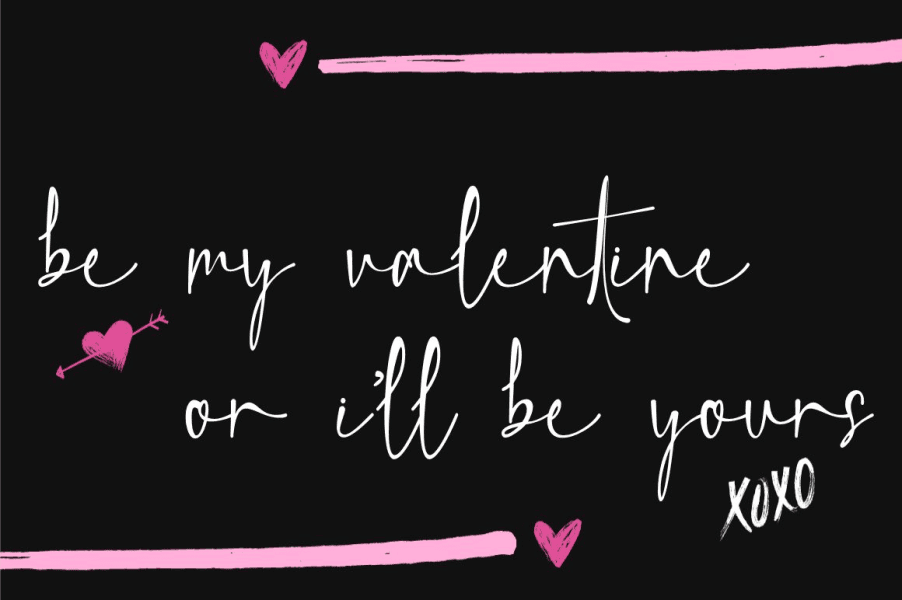 be my valentine
or i'll be yours
XOXO